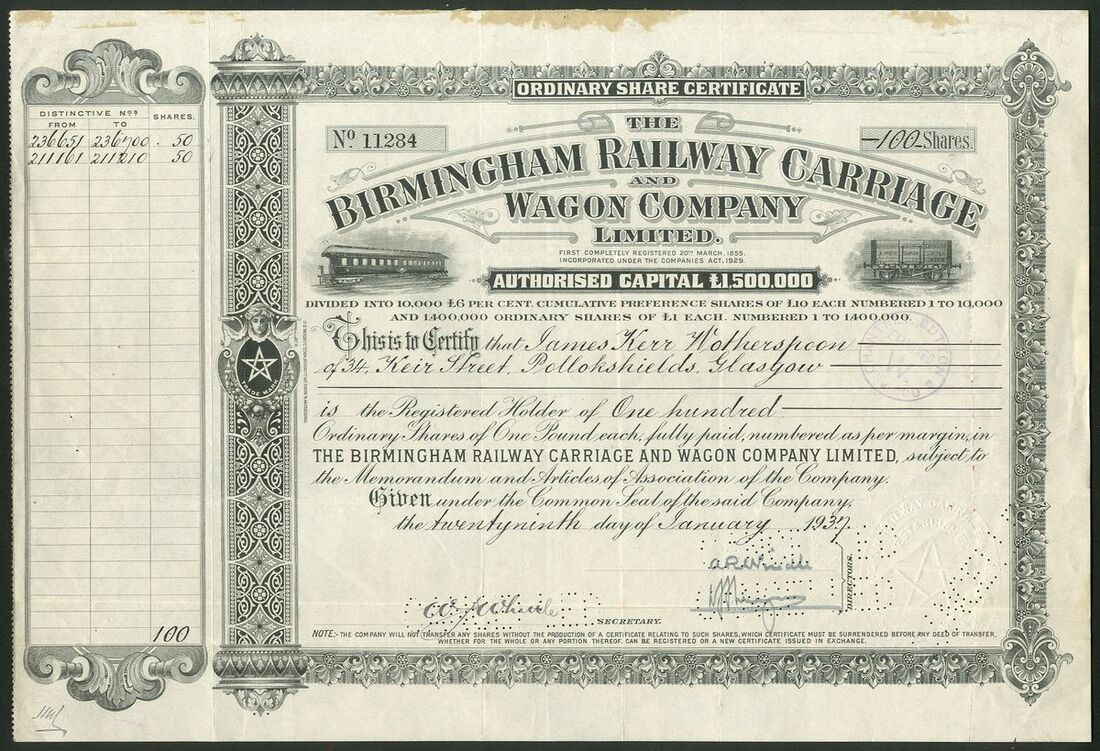 DISTINCTIVE Nos SHARES.
FROM TO
236651 236700 . 50
211161 211210 50
100
ORDINARY SHARE CERTIFICATE
No. 11284
-100- Shares.
THE
BIRMINGHAM RAILWAY CARRIAGE
AND
WAGON COMPANY
LIMITED.
FIRST COMPLETELY REGISTERED 20TH MARCH, 1855.
INCORPORATED UNDER THE COMPANIES ACT, 1929.
AUTHORISED CAPITAL £1,500,000
DIVIDED INTO 10,000 £6 PER CENT. CUMULATIVE PREFERENCE SHARES OF £10 EACH NUMBERED 1 TO 10,000
AND 1,400,000 ORDINARY SHARES OF £1 EACH. NUMBERED 1 TO 1,400,000.
This is to Certify that James Kerr Wotherspoon
of 34, Keir Street, Pollokshields, Glasgow
is the Registered Holder of One hundred
Ordinary Shares of One Pound each, fully paid, numbered as per margin, in
THE BIRMINGHAM RAILWAY CARRIAGE AND WAGON COMPANY LIMITED, subject to
the Memorandum and Articles of Association of the Company.
Given under the Common Seal of the said Company,
the twentyninth day of January 1937.
DIRECTORS.
SECRETARY.
NOTE:- THE COMPANY WILL NOT TRANSFER ANY SHARES WITHOUT THE PRODUCTION OF A CERTIFICATE RELATING TO SUCH SHARES, WHICH CERTIFICATE MUST BE SURRENDERED BEFORE ANY DEED OF TRANSFER,
WHETHER FOR THE WHOLE OR ANY PORTION THEREOF, CAN BE REGISTERED OR A NEW CERTIFICATE ISSUED IN EXCHANGE.
TRADE MARK